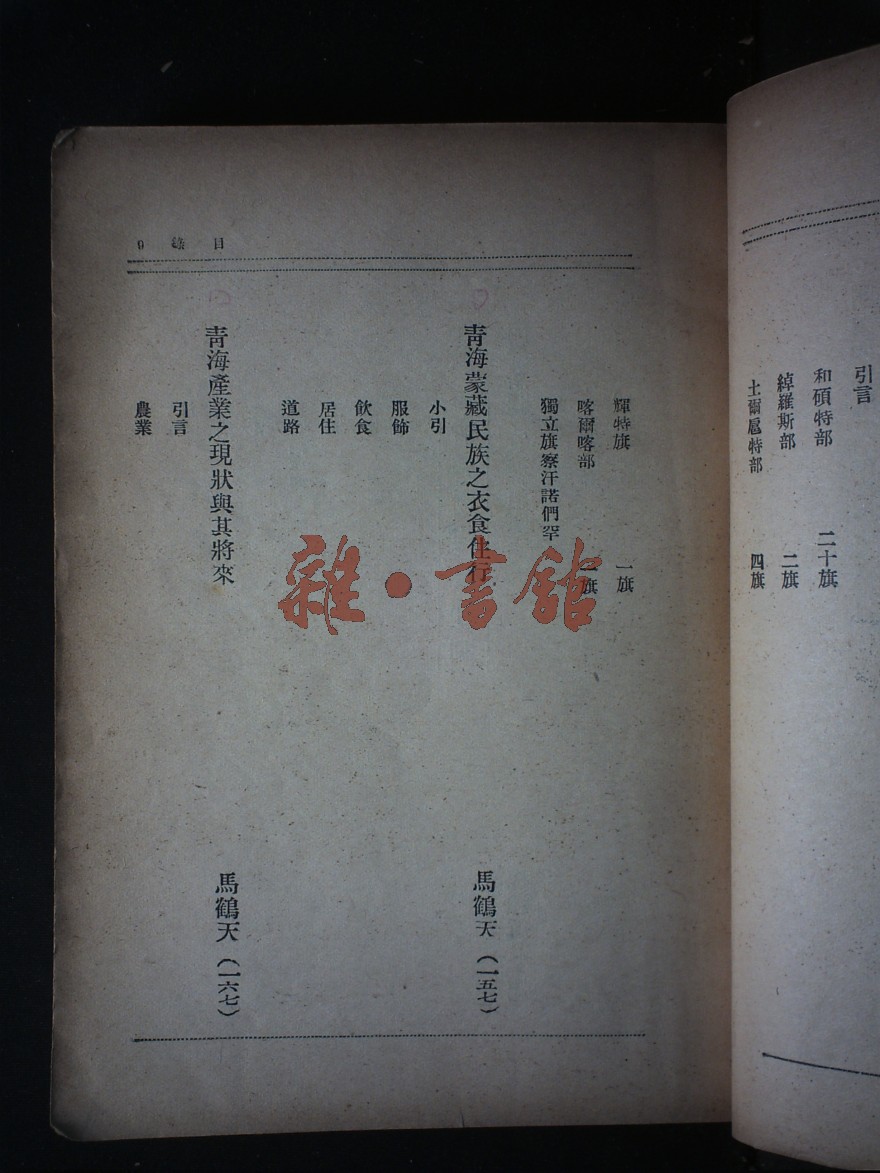 引言
和碩特部 二十旗
綽羅斯部 二旗
土爾扈特部 四旗
目錄 9
輝特旗 一旗
喀爾喀部 一旗
獨立旗察汗諾們罕
青海蒙藏民族之衣食住行 馬鶴天 (一五七)
小引
服飾
飲食
居住
道路
青海產業之現狀與其將來 馬鶴天 (一六七)
引言
農業
雜·書館